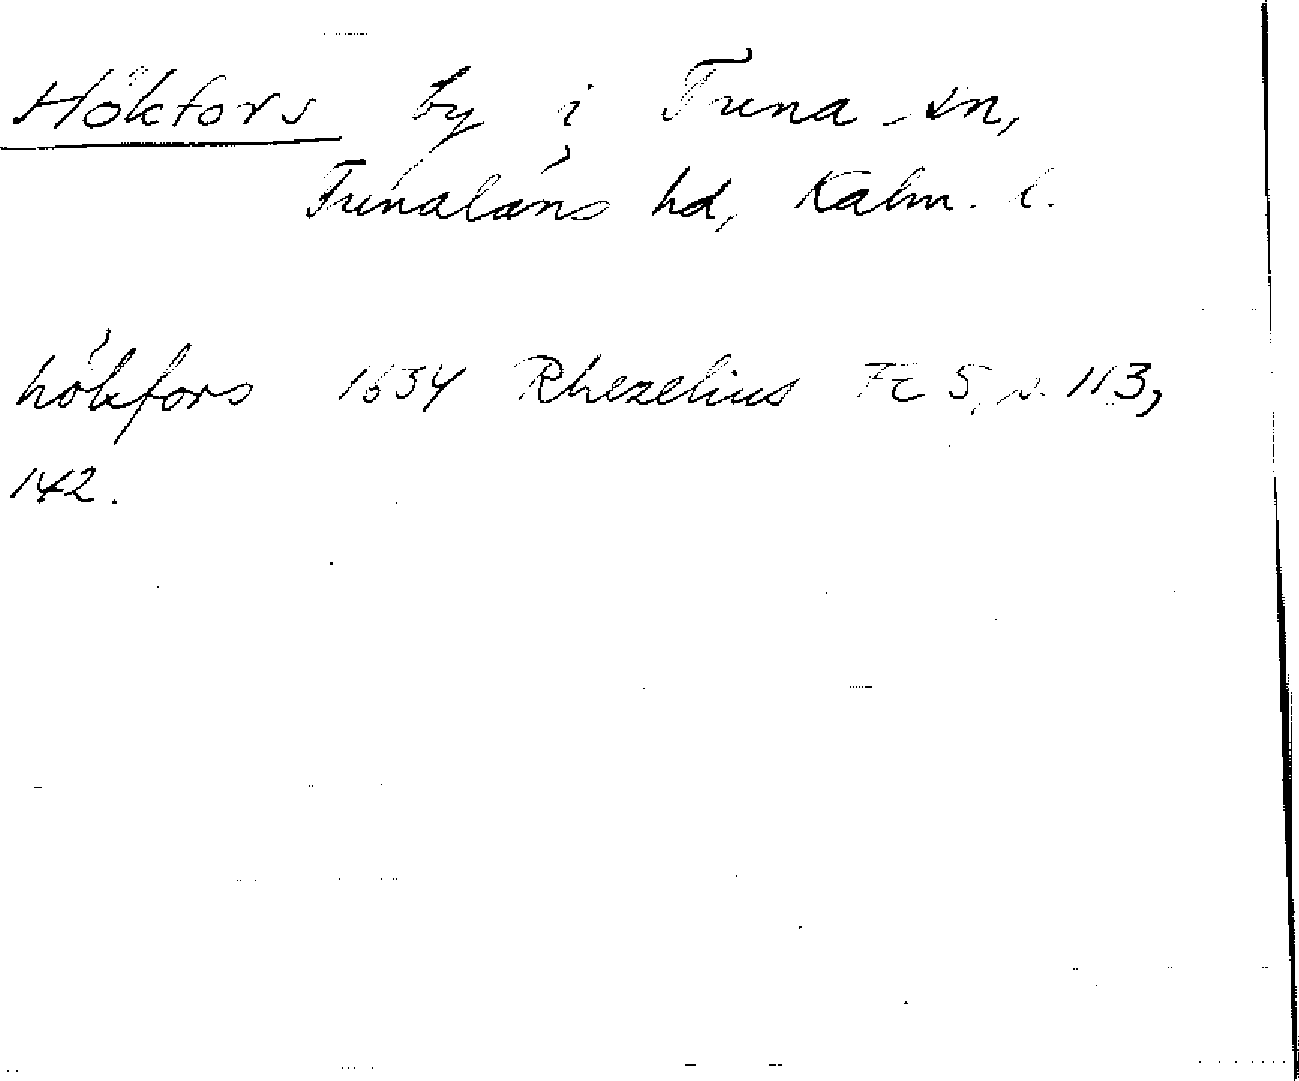 Hökfors by i Tuna sn,
Tunaläns hd, Kalm. l.
hökfors 1634 Rhezelius Fc 5, s. 113,
142.